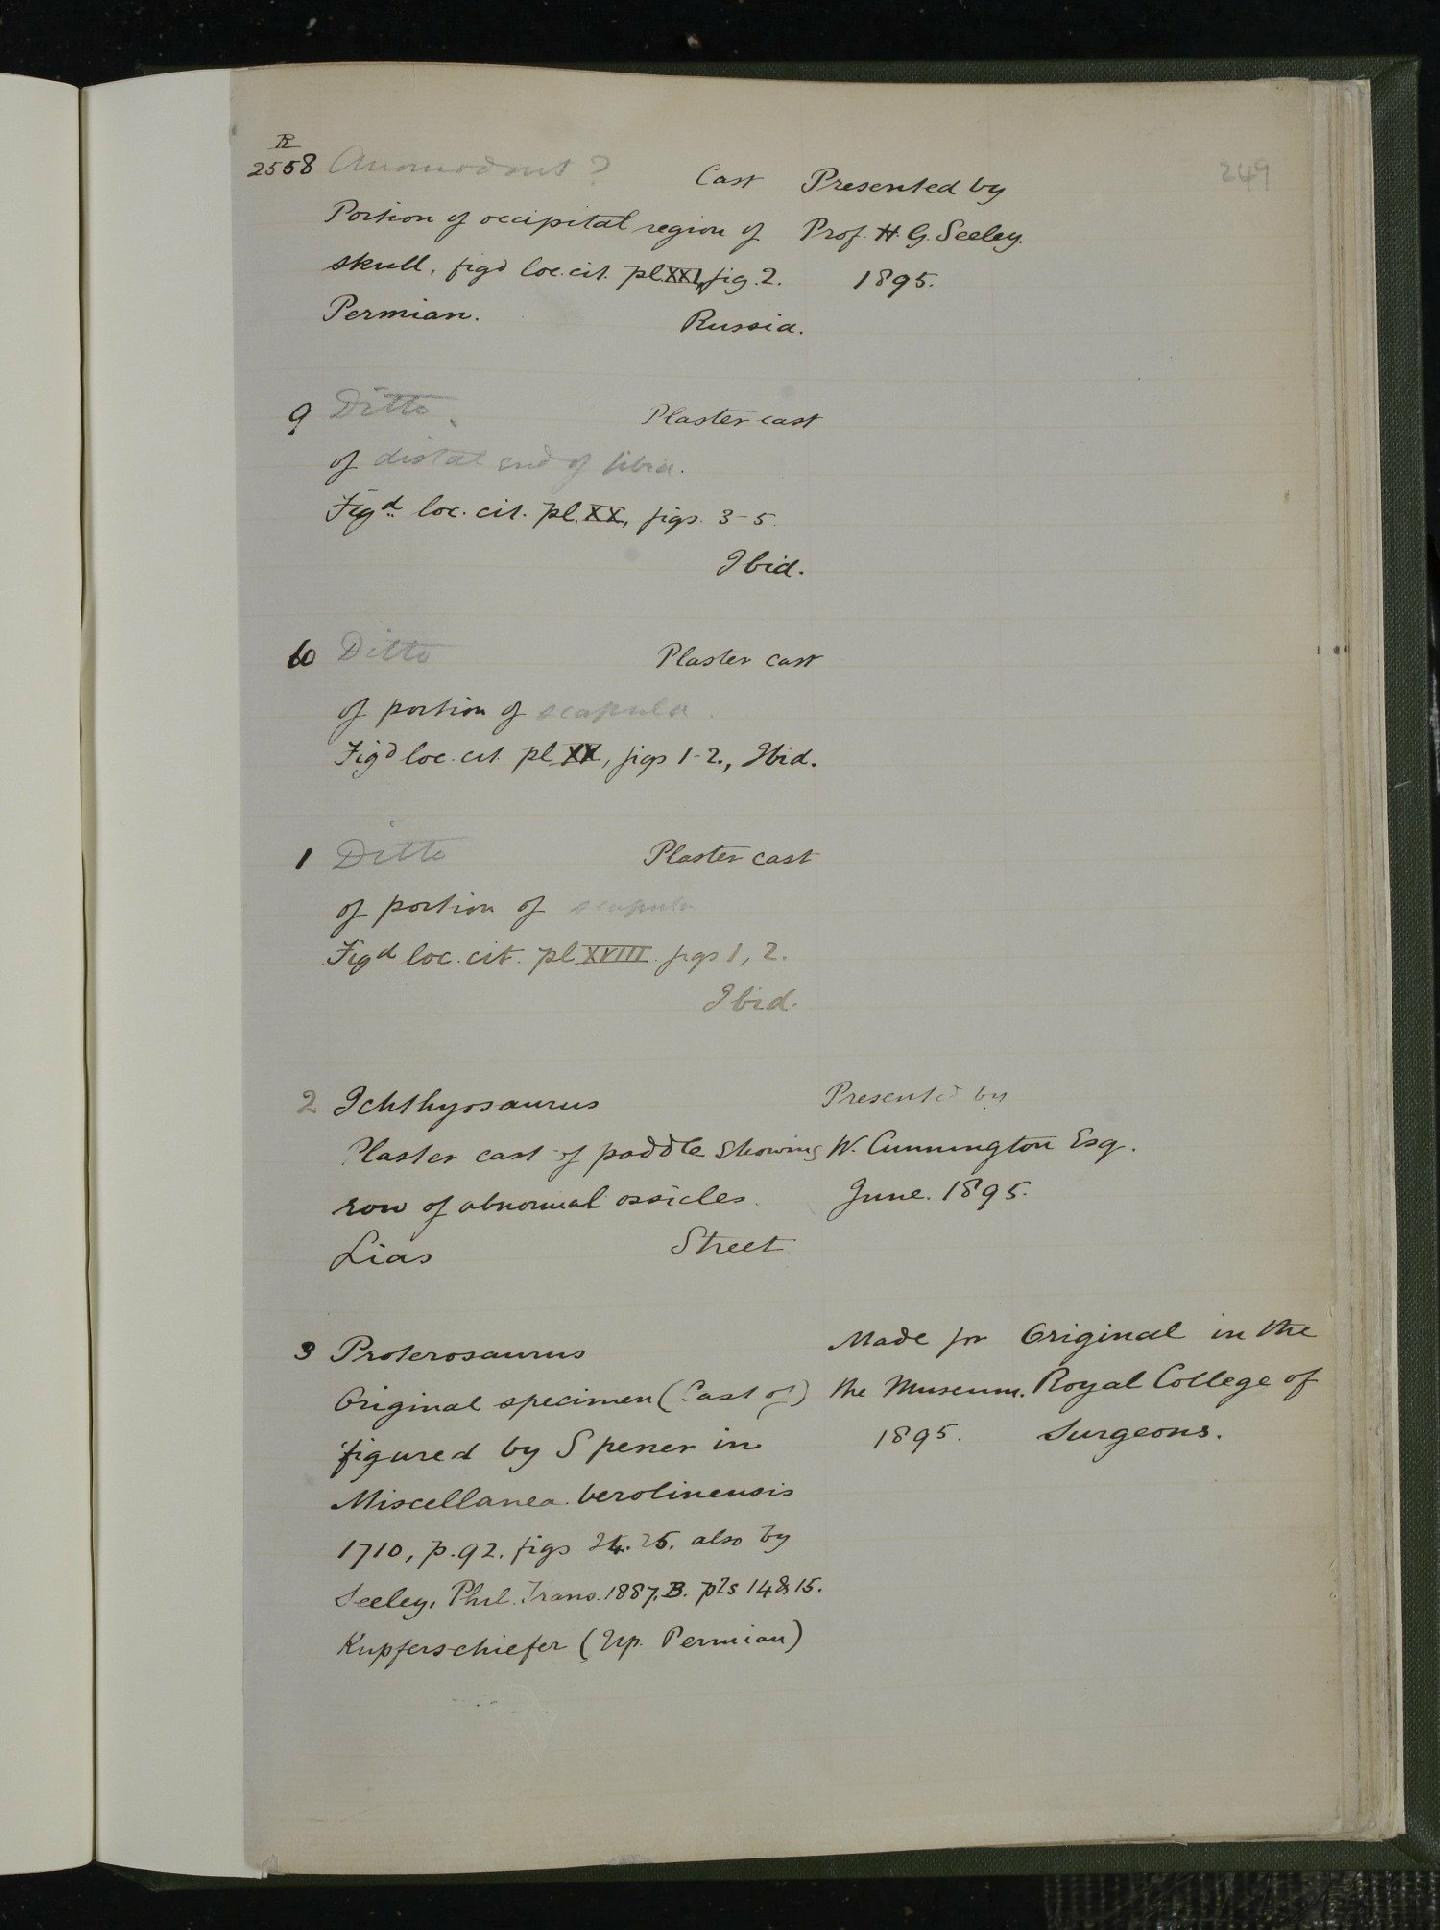 R
2558 Anomodont ? Cast Presented by 249
Portion of occipital region of Prof. H. G. Seeley.
skull, figd loc. cit. pl. XXI, fig. 2. 1895.
Permian. Russia.
9 Ditto. Plaster cast
of distal end of tibia.
Figd. loc. cit. pl. XX, figs. 3-5.
Ibid.
60 Ditto Plaster cast
of portion of scapula.
Figd loc. cit. pl. XX, figs 1-2., Ibid.
1 Ditto Plaster cast
of portion of scapula
Figd loc. cit. pl. XVIII. figs 1, 2.
Ibid.
2 Ichthyosaurus Presented by
Plaster cast of paddle showing W. Cunnington Esq.
row of abnormal ossicles. June. 1895.
Lias Street
3 Proterosaurus Made for Original in the
Original specimen (Cast of) the Museum. Royal College of
figured by Spener in 1895. Surgeons.
Miscellanea berolinensis
1710, p. 92. figs 24. 25. also by
Seeley, Phil. Trans. 1887, B. pls 14 & 15.
Kupferschiefer (Up. Permian)